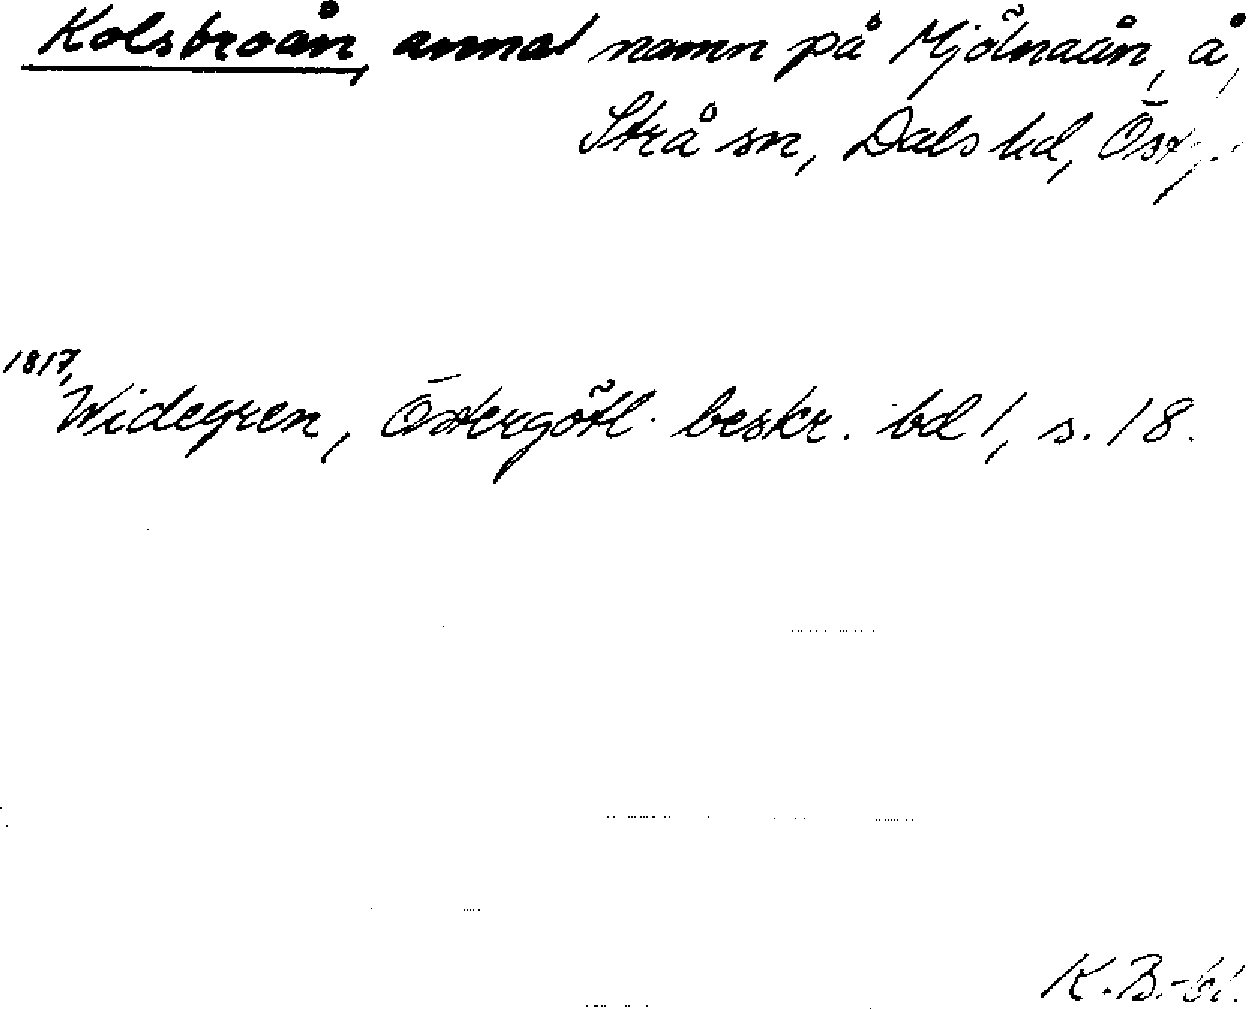 Kolsbroån, annat namn på Mjölnaån, å,
Strå sn, Dals hd, Östg.
1817,
Widegren, Östergötl. beskr. bd 1, s. 18.
K.B.-bl.